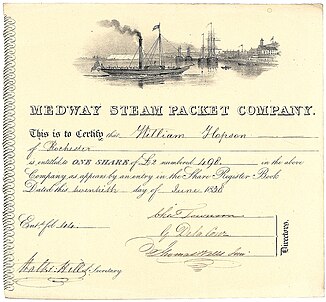 MEDWAY STEAM PACKET COMPANY.
This is to Certify that William Hopson
of Rochester
is entitled to ONE SHARE of £2 numbered 1496. in the above
Company as appears by an entry in the Share Register Book
Dated this twentieth day of June 1836
Entd. fol.
Directory.
Secretary